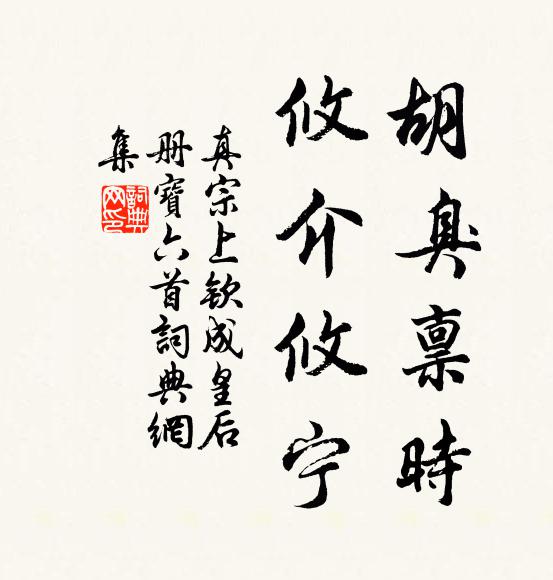 胡臭禀時
攸介攸宁
真宗上欽成皇后
册寶六首詞典網
集
詞典网印